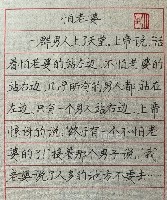 怕老婆
一群男人上了天堂，上帝说，“活
着怕老婆的站左边，不怕老婆的
站右边，几乎所有的男人都站在
左边，只有一个男人站右边，上帝
惊讶的说，“终于有一个不怕老
婆的了！”接着那个男子说，“我
老婆说了人多的地方不要去…